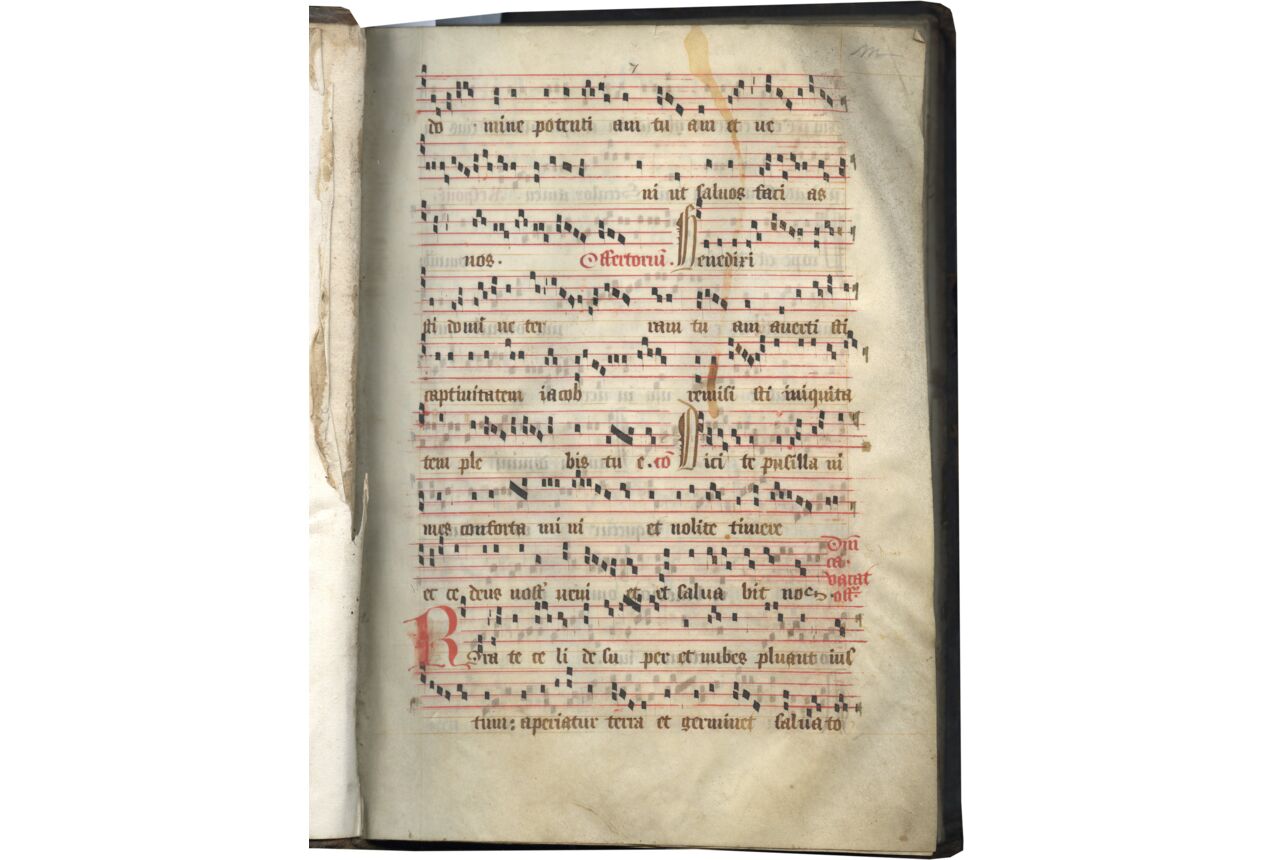 do mine potenti am tu am et ue
ni ut saluos faci as
nos. Offertoriū. Benedixi
sti domīe ter ram tu am auerti sti
captiuitatem iacob remisi sti iniquita
tem ple bis tu e. cō Dici te pusilla ni
mes conforta mi ni et nolite timere
ec ce deus nost' ueni et et salua bit nos. Dn̄i
ca.
vacat
off.
Rora te ce li de su per et nubes pluant ius
tum: aperiatur terra et germinet salua to